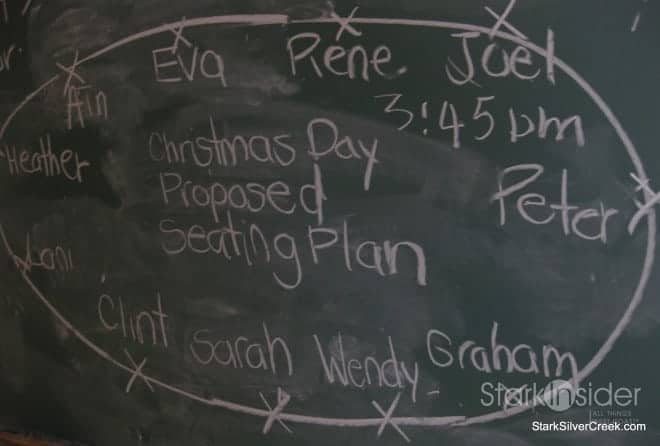 Eva Rene Joel
Ain
3:45 pm
Heather
Christmas Day
Proposed
Peter
Seating Plan
Lani
Clint Sarah Wendy Graham
StarkInsider
ALL THINGS
StarkSilverCreek.com